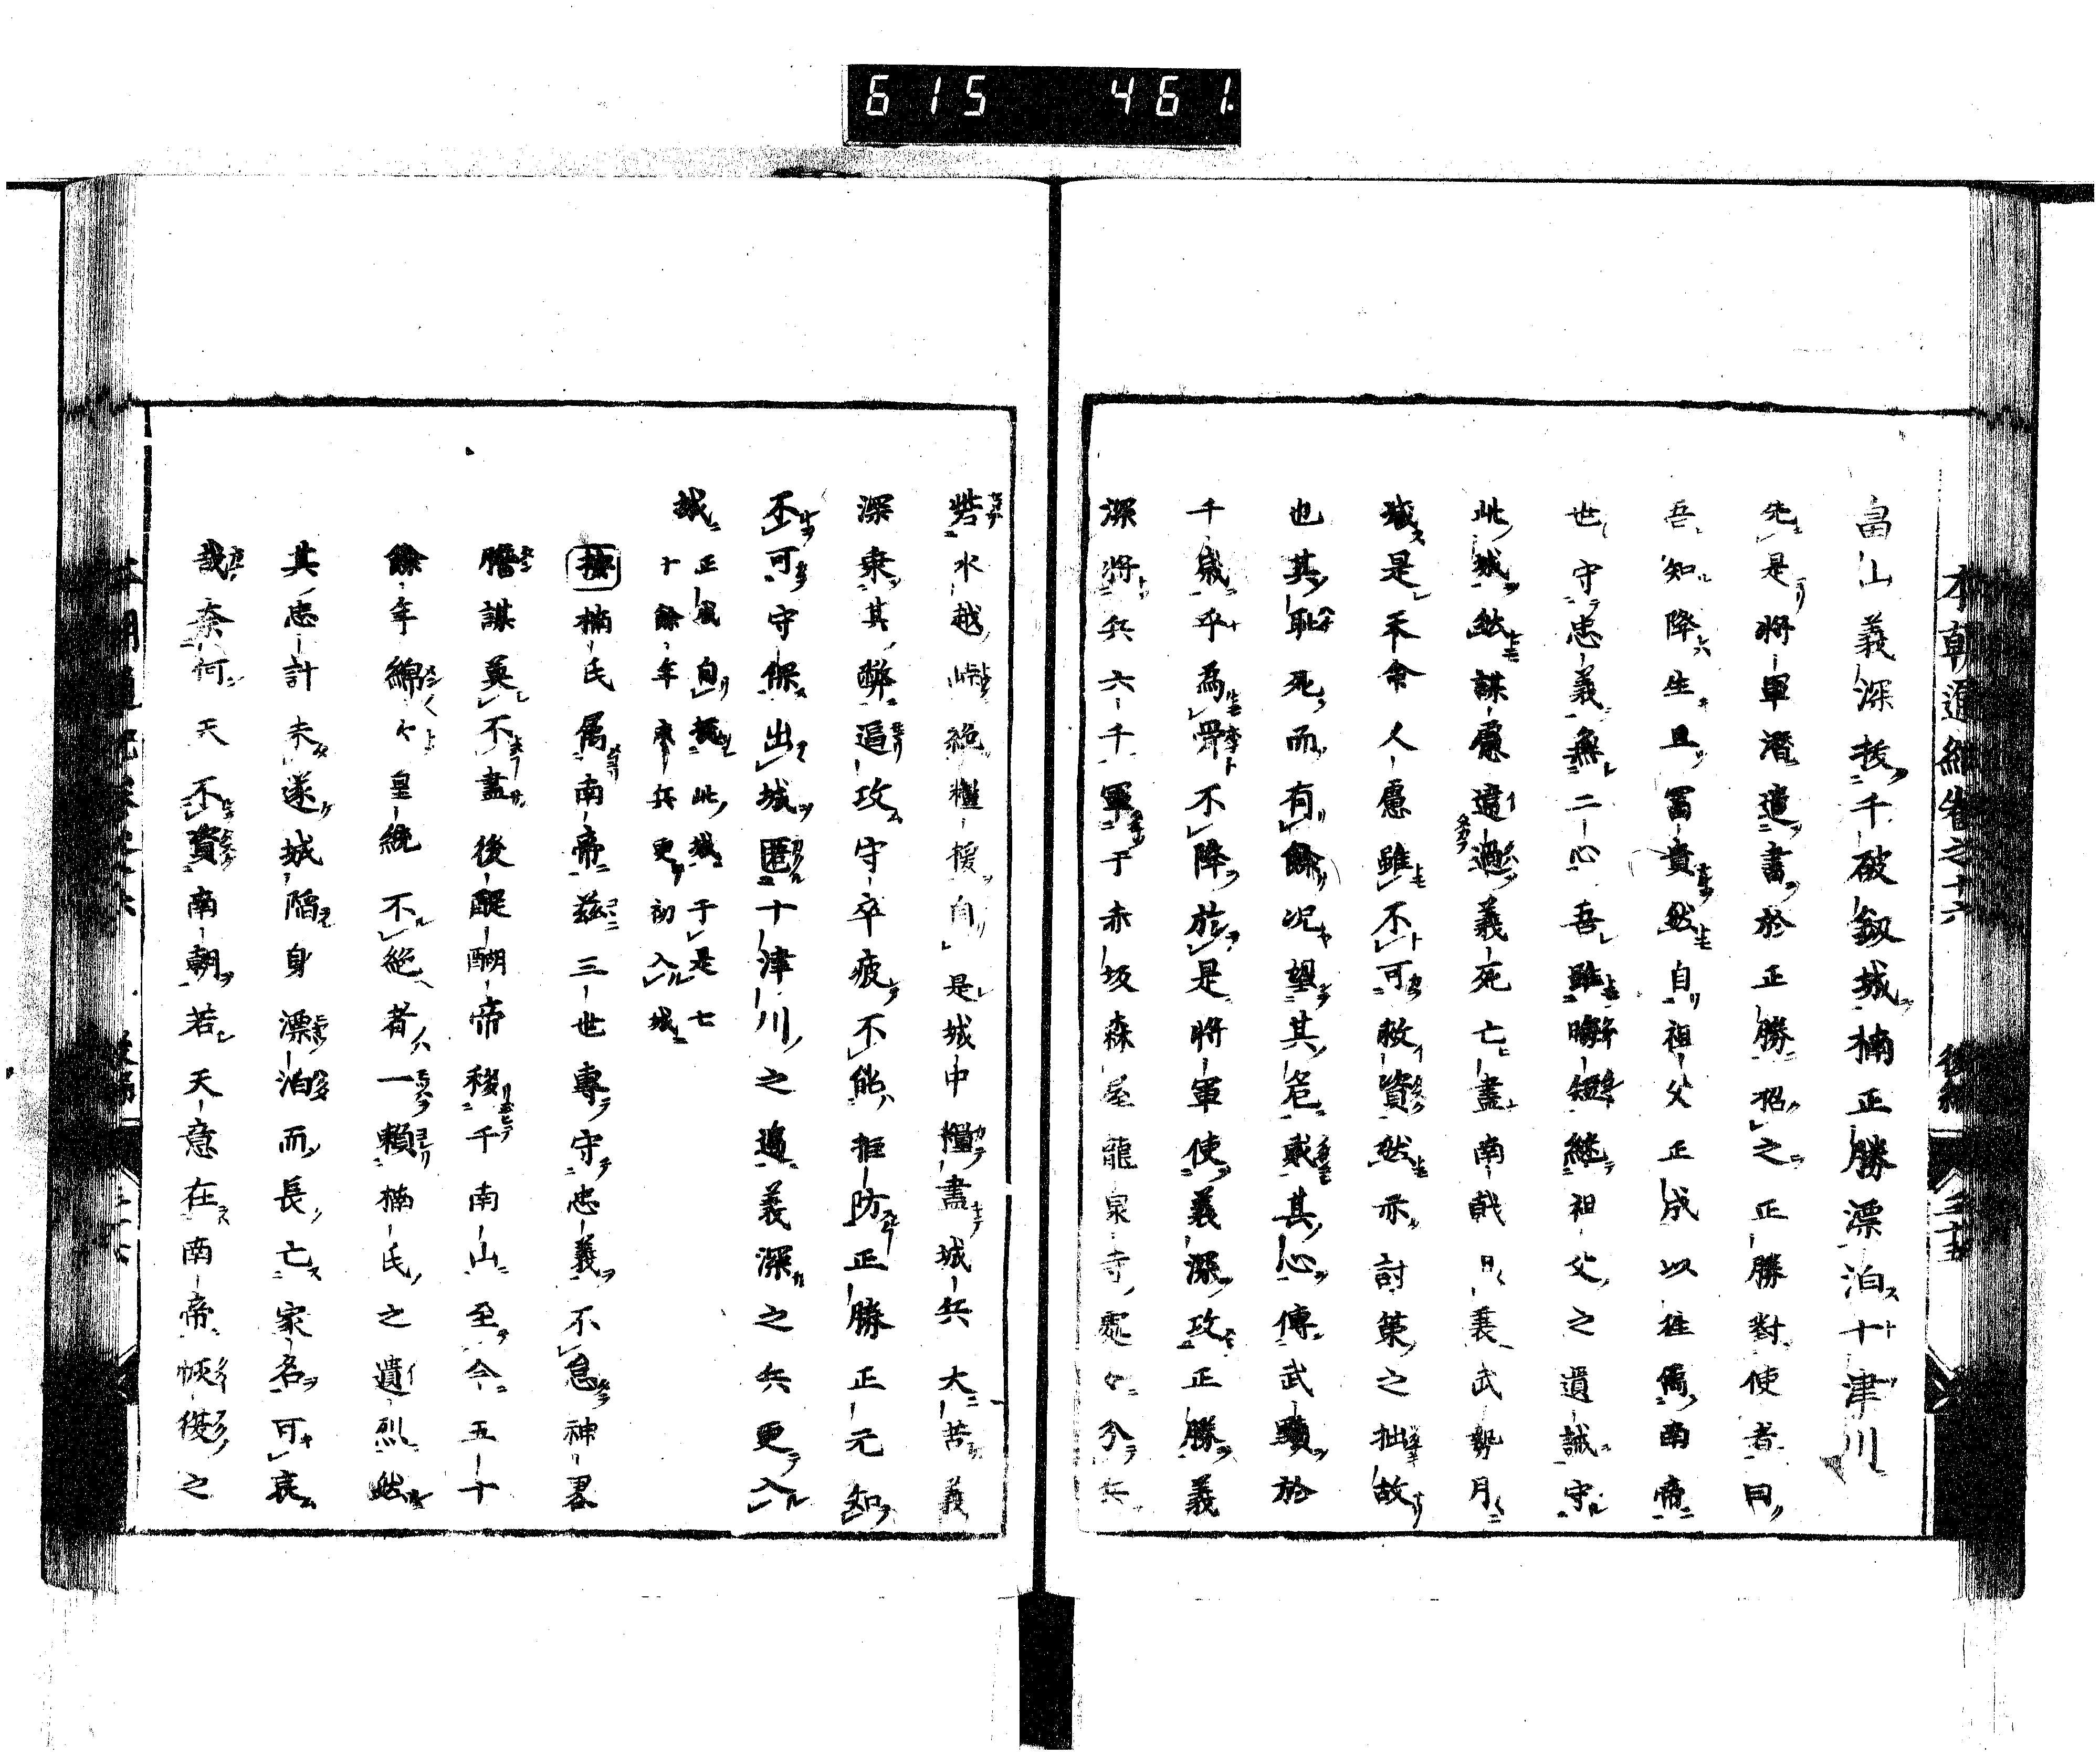 615 461
畠山義深抜千破釼城楠正勝漂泊十津川
先是將軍潛遣書於正勝招之正勝對使者曰
吾知降生且冨貴然自祖父正成以往属南帝
世守忠義無二心吾雖瞬短継祖父之遺誠守
此城然謀慮遺過義死亡盡南戟日襄武勢月
減是不命人慮雖不可救資然亦討策之拙故
也其耻死而有餘况望其危貳其心傳武黷於
千歳乎為骨不降於是將軍使義深攻正勝義
深將兵六千軍于赤坂森屋龍泉寺處々分兵
水越峠絶糧援自是城中糧盡城兵大苦義
深乗其弊逼攻守卒疲不能拒防正勝正元知
不可守保出城匿十津川之邉義深之兵更入
城
正成自抜此城于是七
十餘年來兵更初入城
楠氏属南帝茲三世專守忠義不怠神畧
膽謀莫不盡後醍醐帝移千南山至今五十
餘年綿々皇統不絶者一頼楠氏之遺烈然
其忠計未遂城陥身漂泊而長亡家名可哀
哉奈何天不資南朝若天意在南帝恢復之